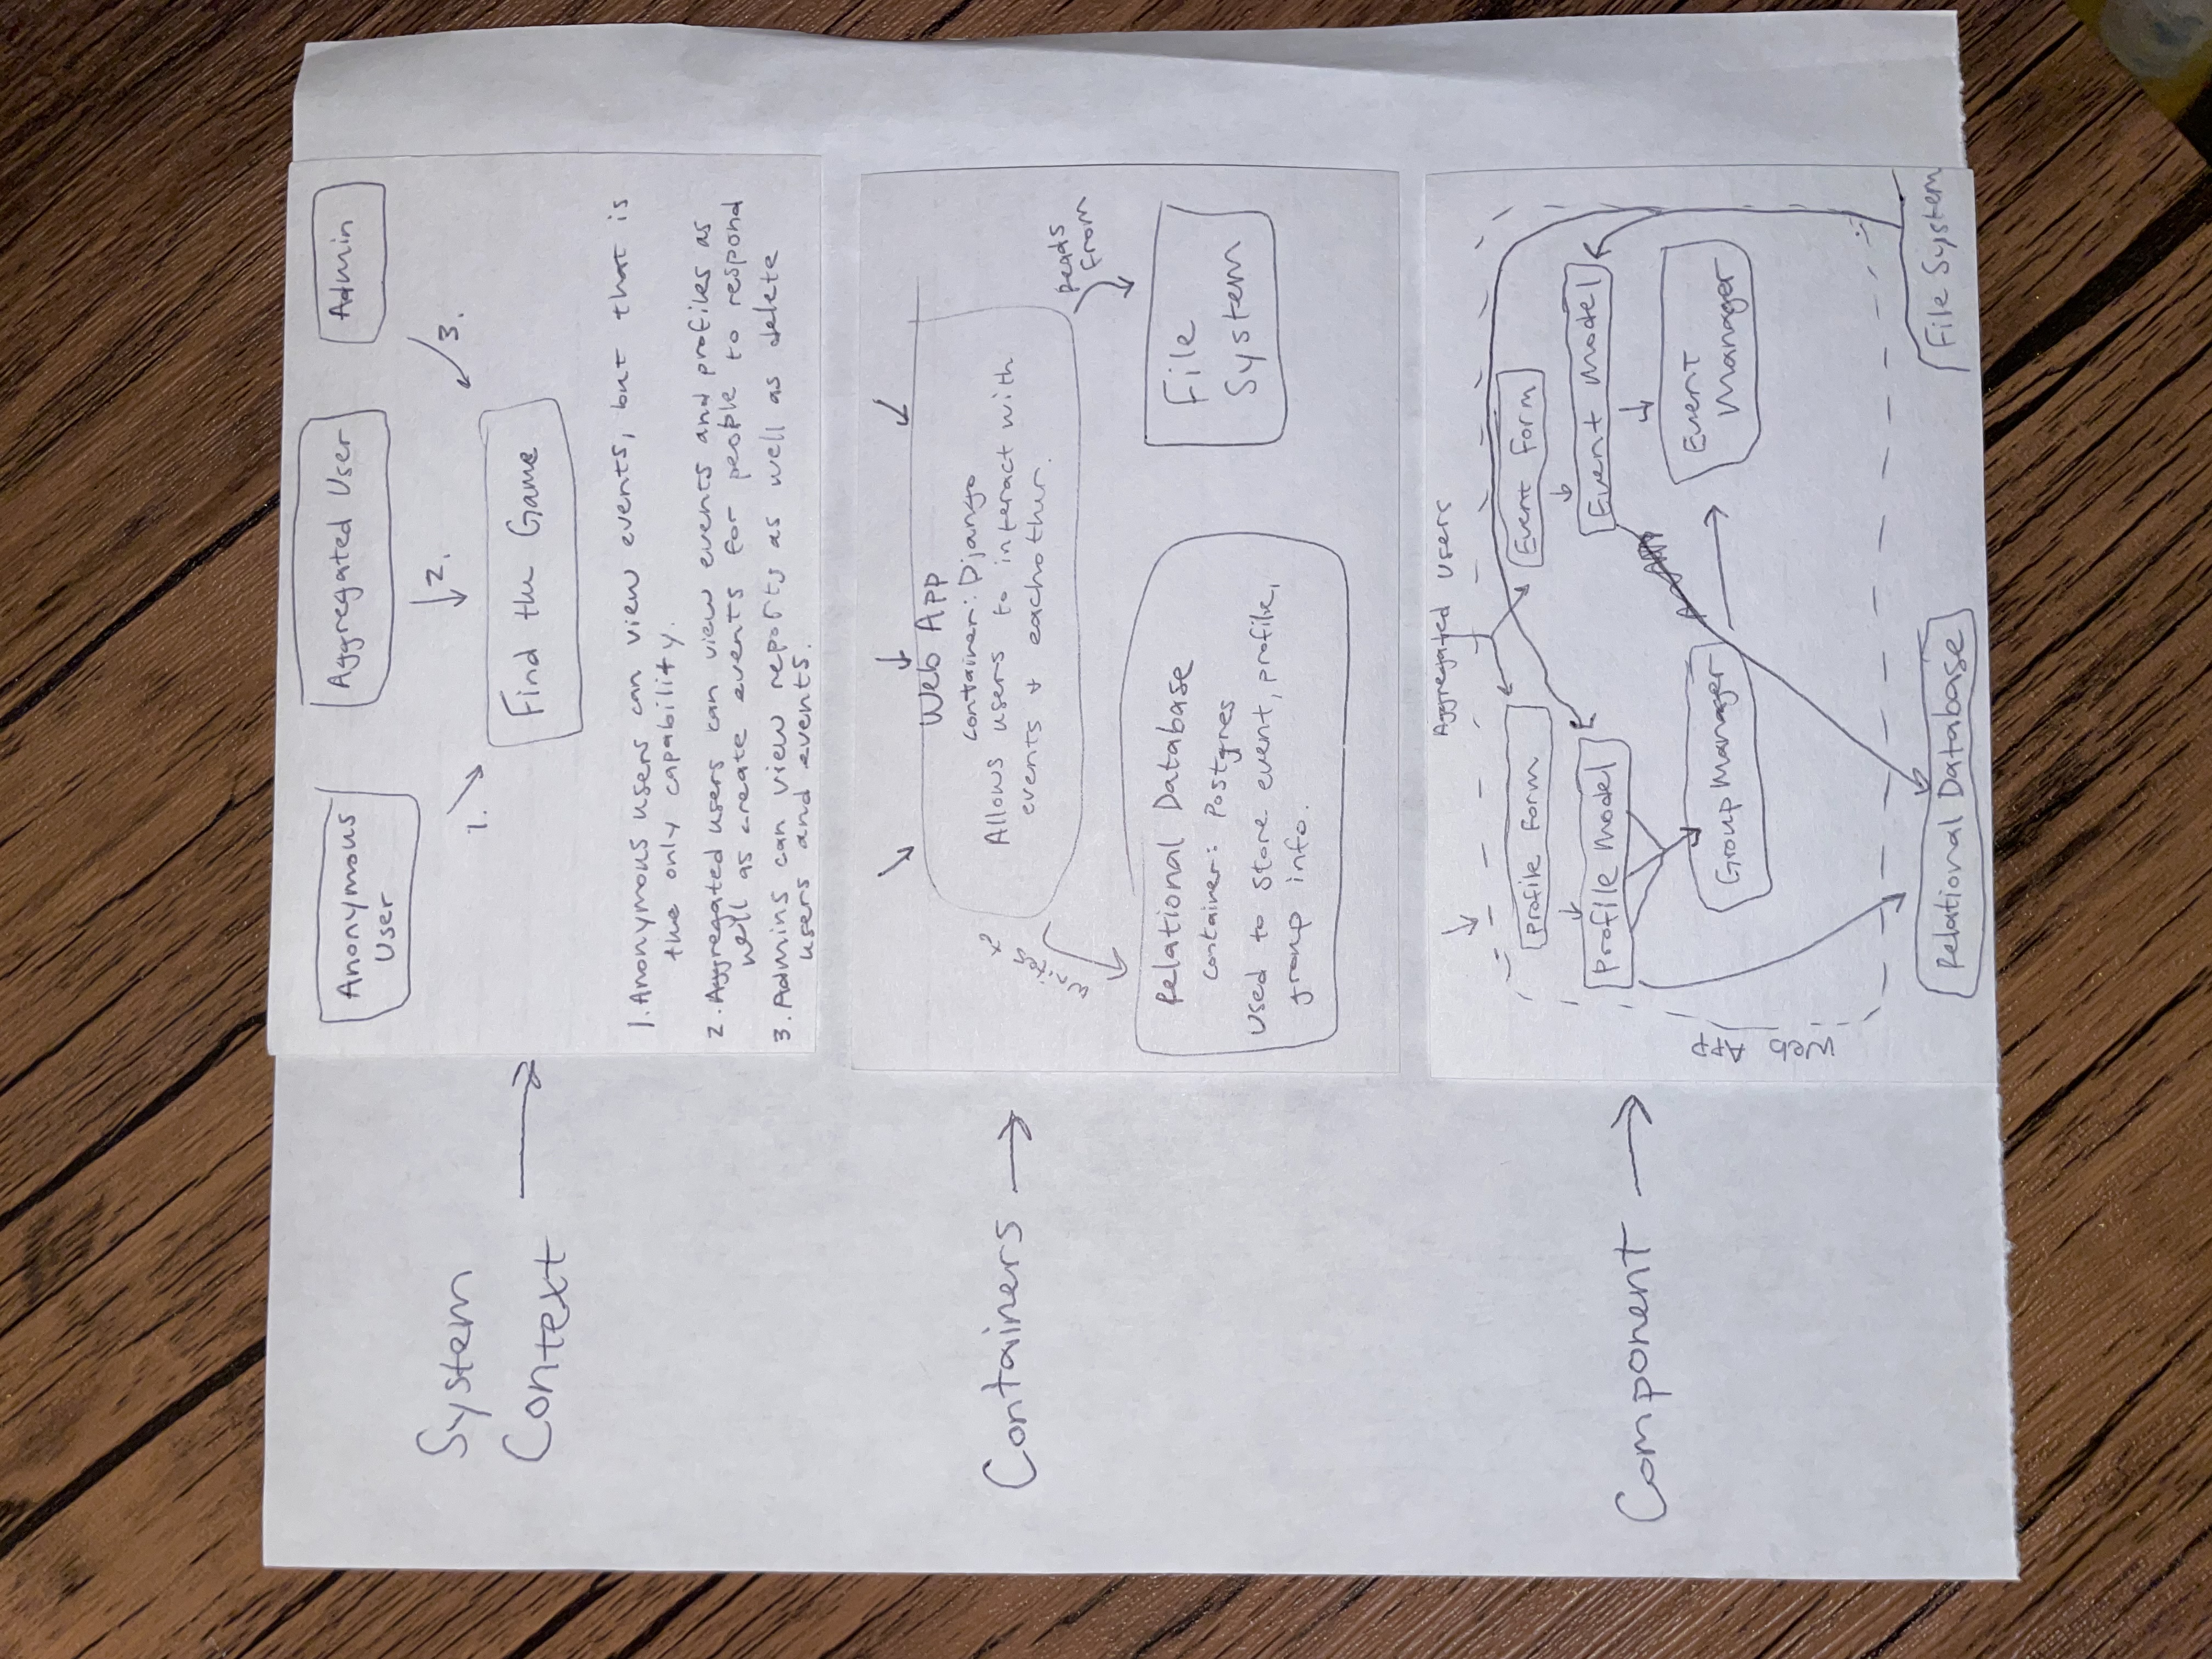 System
Context
Anonymous
User
Aggregated User
Admin
1.
2.
3.
Find the Game
1. Anonymous users can view events, but that is
the only capability.
2. Aggregated users can view events and profiles as
well as create events for people to respond
3. Admins can view reports as well as delete
users and events.
Containers
Web App
Container: Django
Allows users to interact with
events + eachother.
writes to
Reads
from
Relational Database
Container: Postgres
Used to store event, profile,
group info.
File
System
Component
Aggregated users
Profile Form
Event Form
Profile Model
Event Model
Group Manager
Event
Manager
Web App
Relational Database
File System